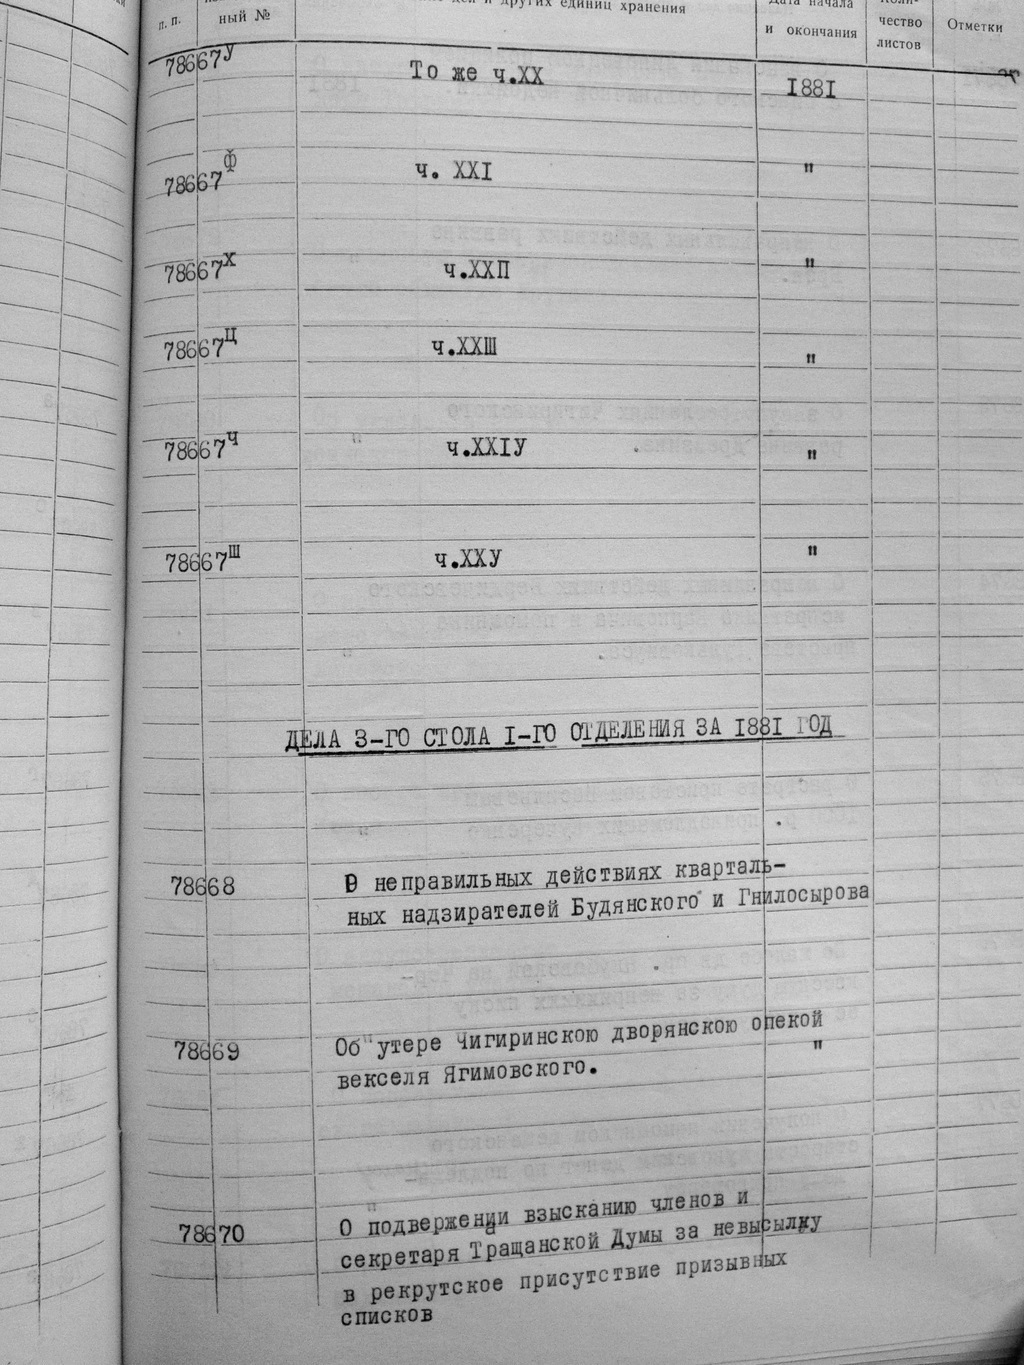 п. п.
ный №
и других единиц хранения
Дата начала
и окончания
Коли-
чество
листов
Отметки
78667У То же ч.XX 1881
78667Ф ч. XXI "
78667Х ч.XXП "
78667Ц ч.XXШ "
78667Ч ч.XXIУ "
78667Ш ч.XXУ "
ДЕЛА 3-ГО СТОЛА I-ГО ОТДЕЛЕНИЯ ЗА 1881 ГОД
78668 О неправильных действиях кварталь-
ных надзирателей Будянского и Гнилосырова
78669 Об утере Чигиринскою дворянскою опекой
векселя Ягимовского. "
78670 О подвержении взысканию членов и
секретаря Тращанской Думы за невысылку
в рекрутское присутствие призывных
списков